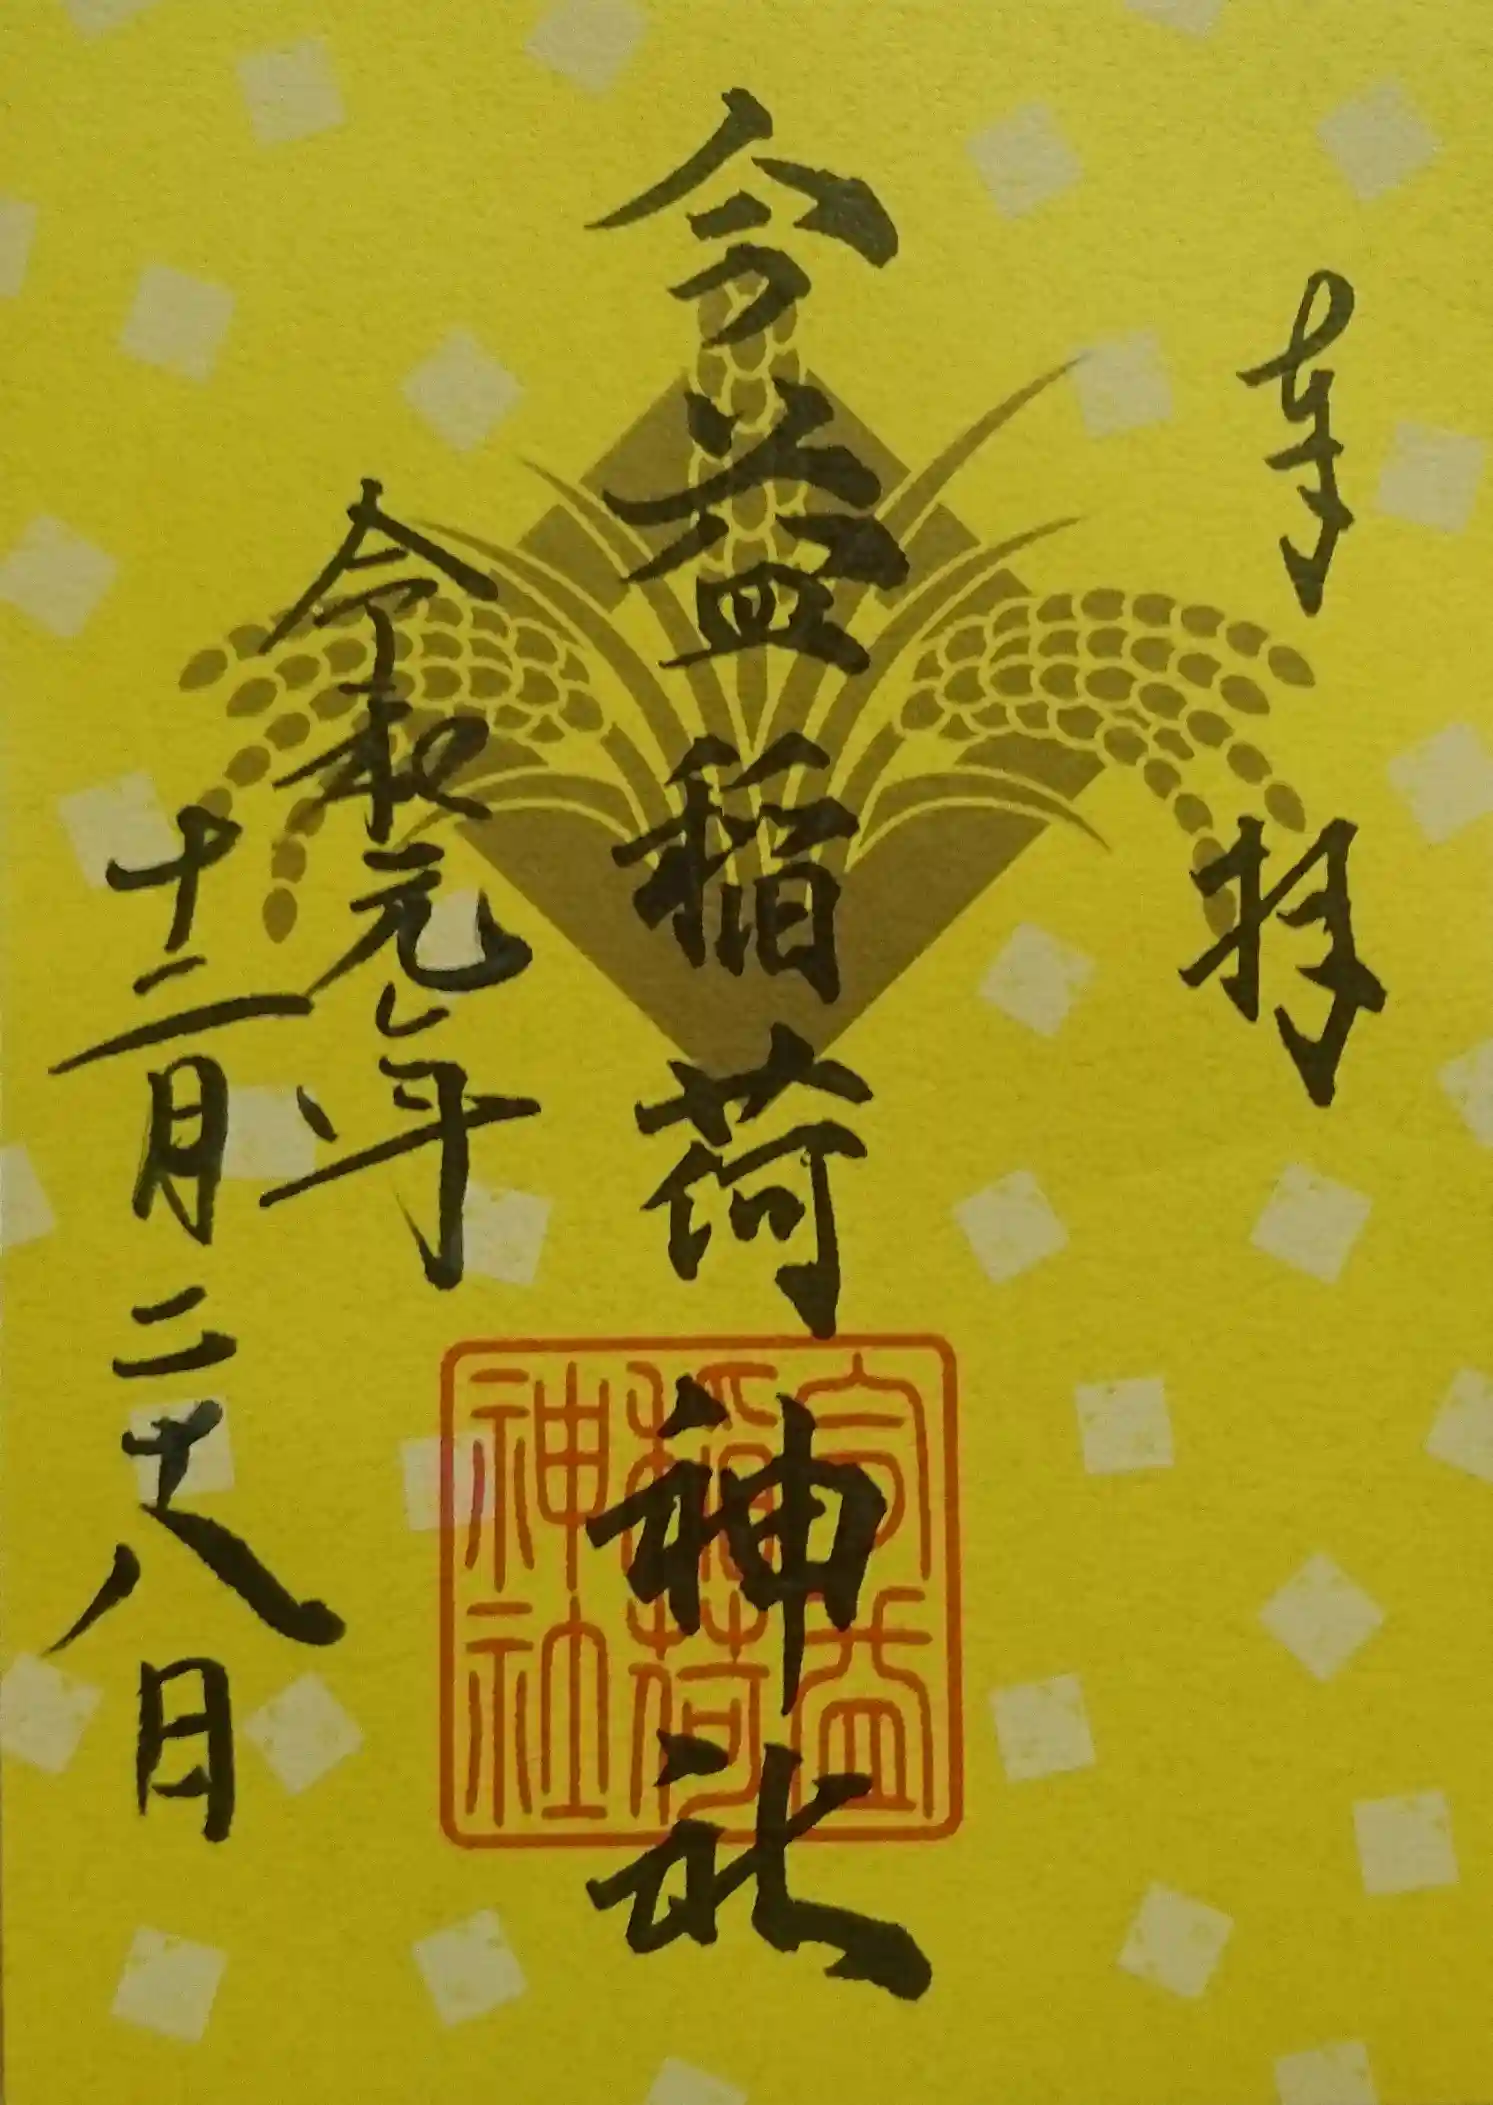 奉拝
宇益稲荷神社
令和元年
十二月二十八日
宇益
稲荷
神社